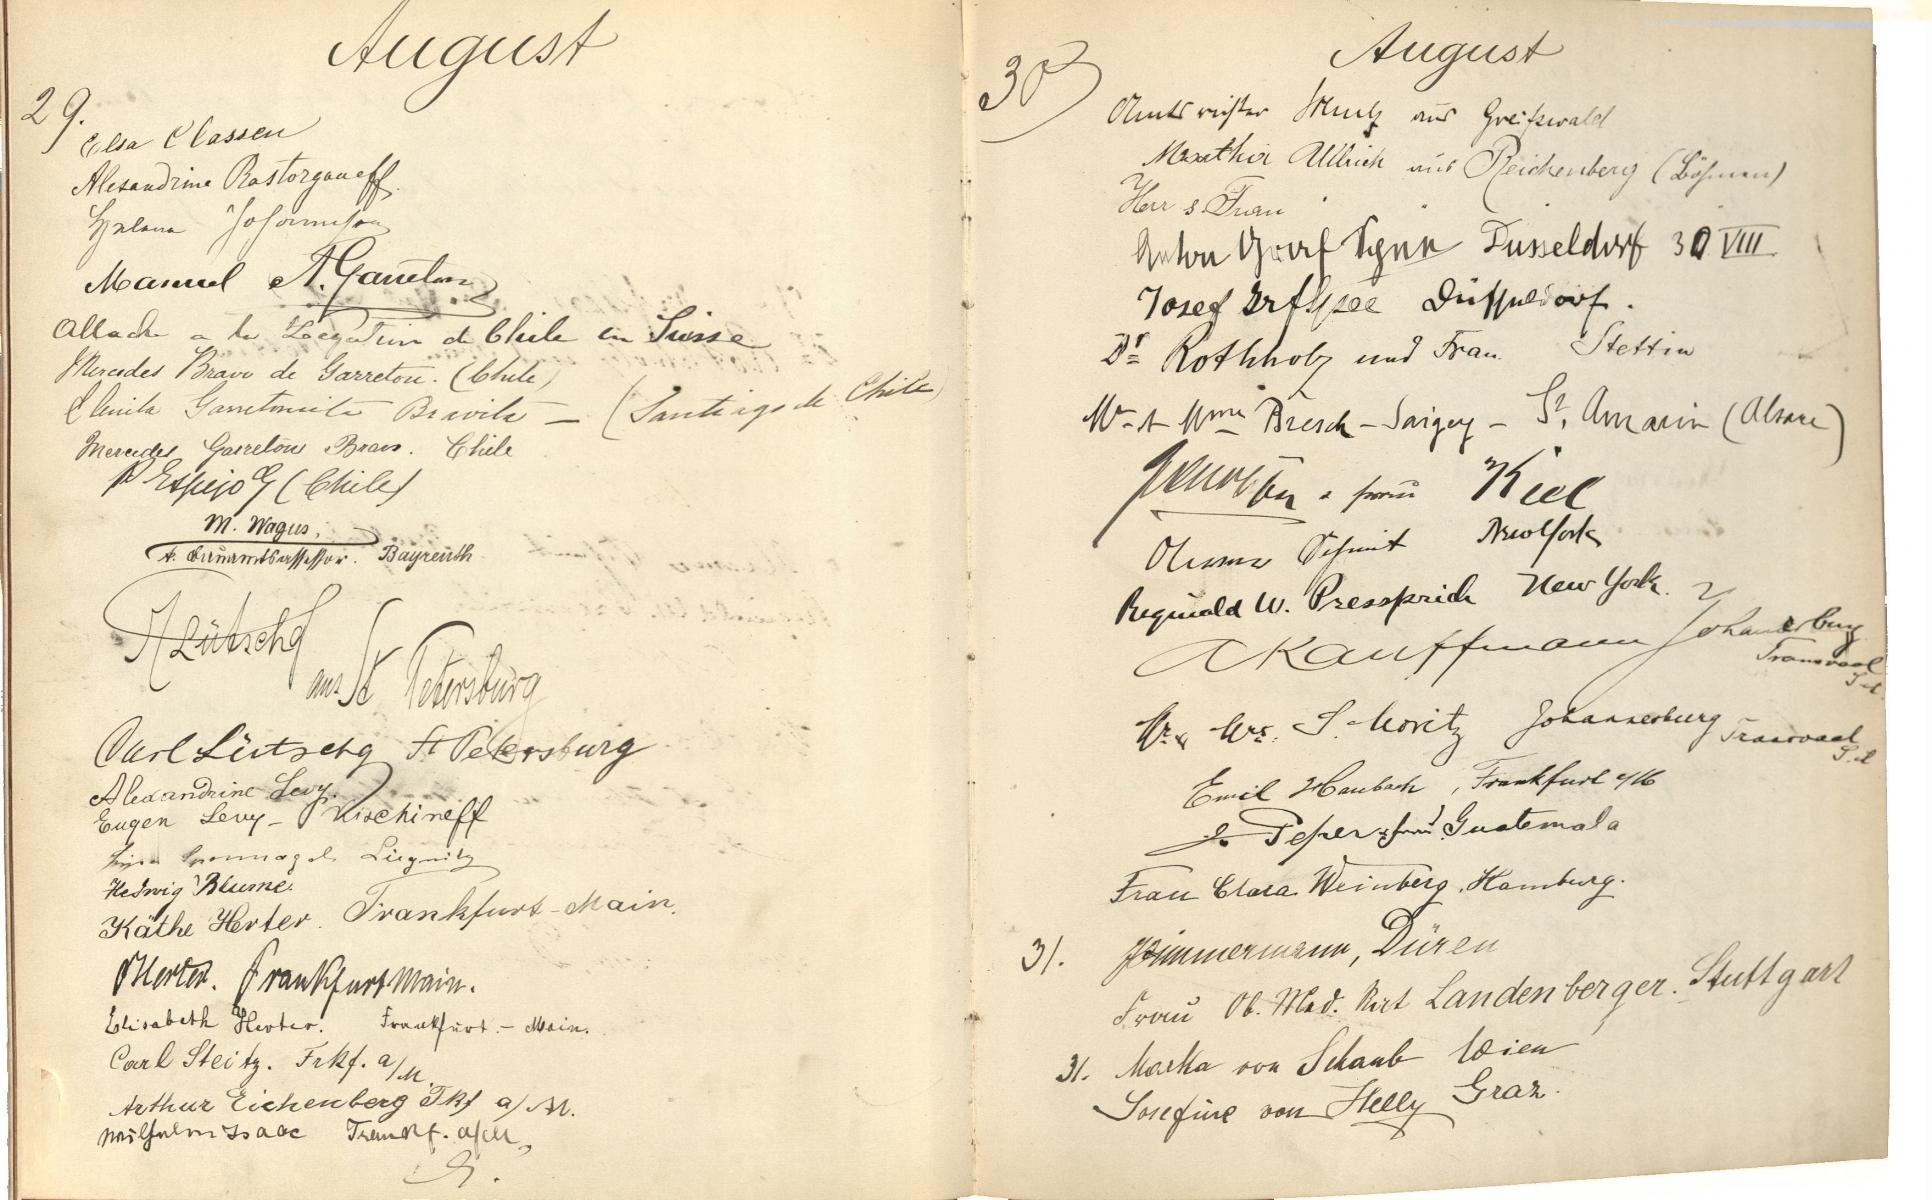 August
29.
Elsa Classen
Alexandrine Rastorgoueff.
Helene
Manuel A. Garreton
Attaché a la Legation de Chile en Suisse
Mercedes Bravo de Garreton. (Chile)
Garretoncita Bravita — (Santiago de Chile)
Mercedes Garreton Bravo. Chile
Espejo G (Chile)
M. Wagus,
Bayreuth
A Lütschg
aus St Petersburg
Carl Lütschg St Petersburg
Alexandrine Levy.
Eugen Levy — Kischineff
Sonnnagel Liegnitz
Hedwig Blume.
Käthe Herter. Frankfurt-Main.
Herter. Frankfurt Main.
Elisabeth Herter. Frankfurt. - Main.
Carl Steitz. Frkf. a/M.
Arthur Eichenberg Fkf a/M.
Wilhelm Isaac Frankf. a/M,
August
30
Amtsrichter aus Greifswald
Martha Ullrich aus Reichenberg (Böhmen)
Herr & Frau
Anton Graf Düsseldorf 30 VIII
Josef Düsseldorf.
Dr Rothholz und Frau Stettin
Mr et Mme Bresch-Saigey - St. Amarin (Alsace)
& Frau Kiel
Schmit New York
Reginald W. Pressprich New York.
A Kauffmann Johannesburg
Transvaal
Mr & Mrs. S. Moritz Johannesburg Transvaal
Emil Haubach, Frankfurt a/M
J. Peper & Frau Guatemala
Frau Clara Weinberg. Hamburg.
31. Zimmermann, Düren
Frau Ob. Med. Rat Landenberger. Stuttgart
31. Marka von Schaub Wien
Josefine von Helly Graz.